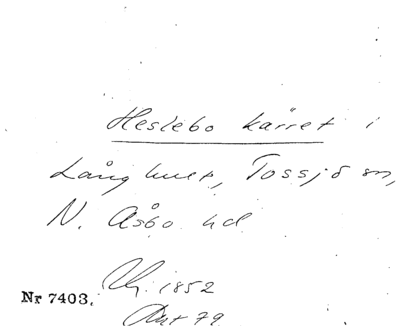 Heslebo kärret i
Långhult, Tossjö sn,
N. Åsbo hd
1852
Nr 7403.
79